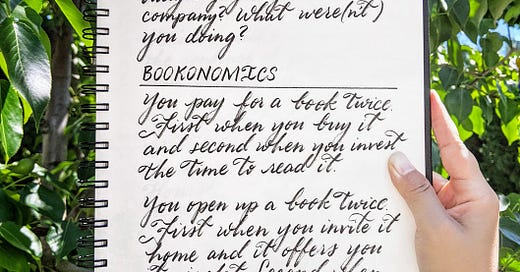 company? What were(nt)
you doing?
BOOKONOMICS
You pay for a book twice.
First when you buy it
and second when you invest
the time to read it.
You open up a book twice.
First when you invite it
home and it offers you